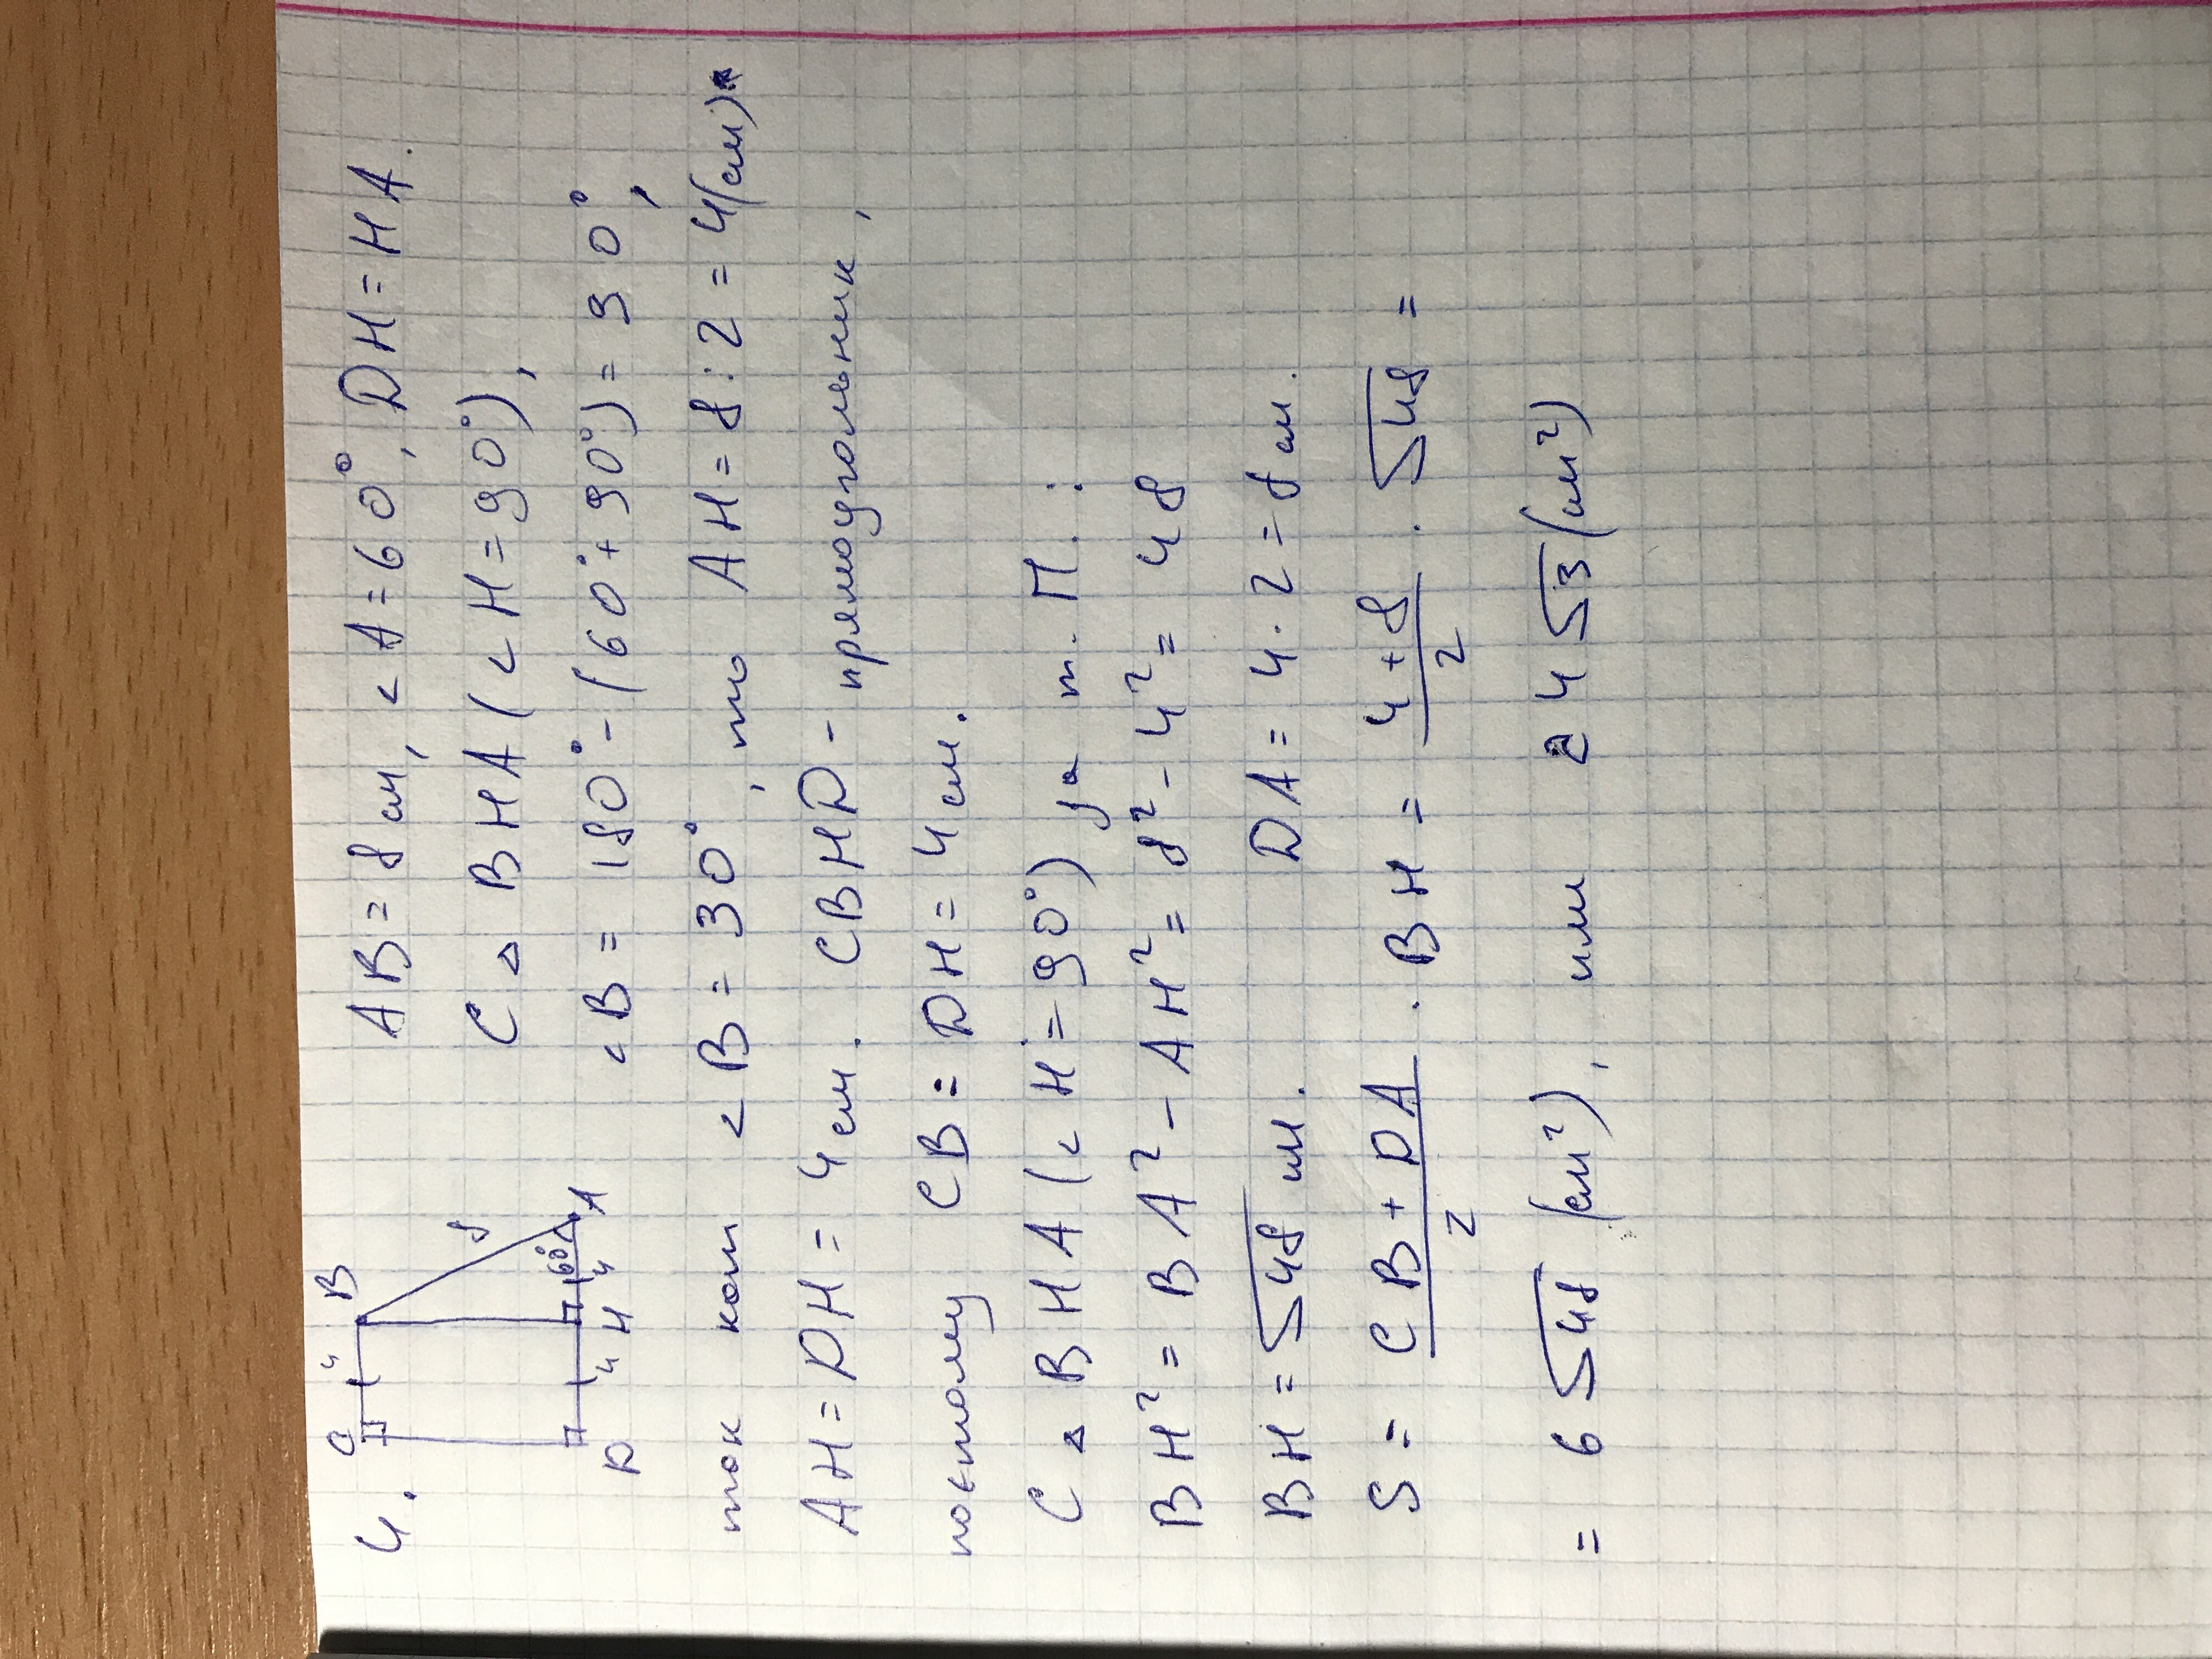 4. C 4 B 8 60° A 4 H 4 D
AB = 8 см, <A = 60°, DH = HA.
С △ BHA (<H = 90°),
<B = 180° - (60° + 90°) = 90°,
так как <B = 30°, то AH = 8 : 2 = 4 (см)
AH = DH = 4 см. CBHD - прямоугольник,
поэтому CB = DH = 4 см.
С △ BHA (<H = 90°) за т. П. :
BH² = BA² - AH² = 8² - 4² = 48
BH = √48 см. DA = 4 · 2 = 8 см.
S = (CB + DA)/2 · BH = (4 + 8)/2 · √48 =
= 6 √48 (см²), или 24 √3 (см²)